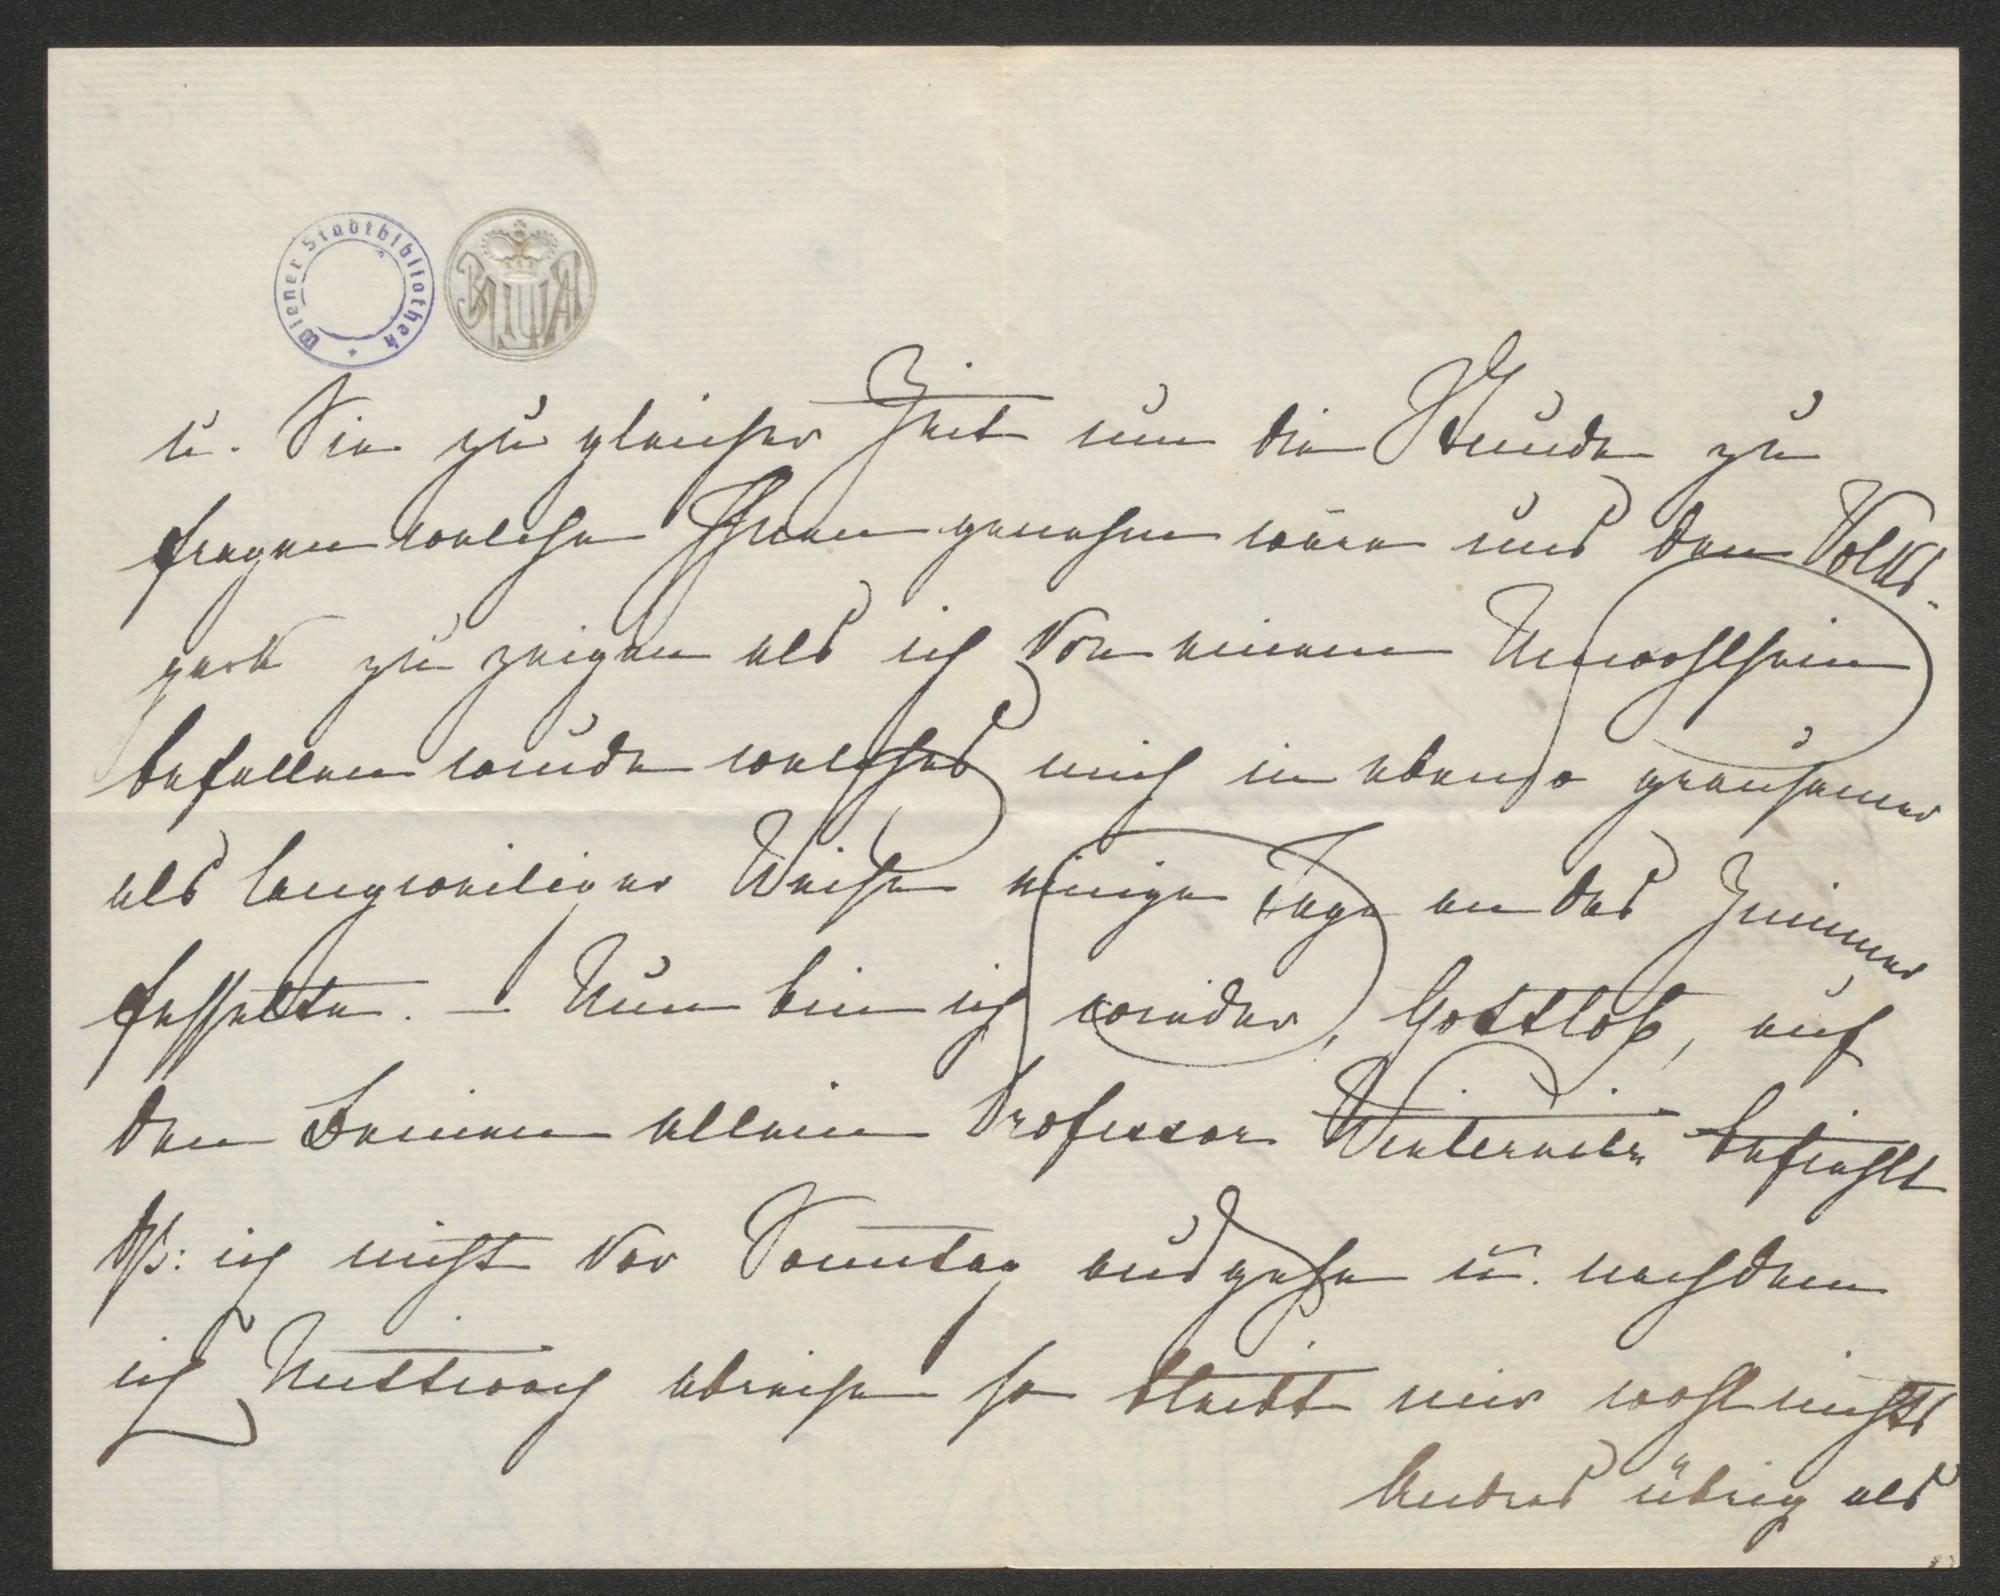 Wiener Stadtbibliothek
u. Sie zu gleicher Zeit um die Stunde zu
fragen welche Ihnen genehm wäre uns den Volks-
park zu zeigen als ich von einem Unwohlsein
befallen wurde welches mich in ebenso grausamer
als langweiliger Weise einige Tage an das Zimmer
fesselte. — Nun bin ich wieder, Gottlob, auf
den Beinen allein Professor Winternitz befiehlt
dß: ich nicht vor Sonntag ausgehe u. nachdem
ich Mittwoch abreise so bleibt mir wohl nichts
Andres übrig als